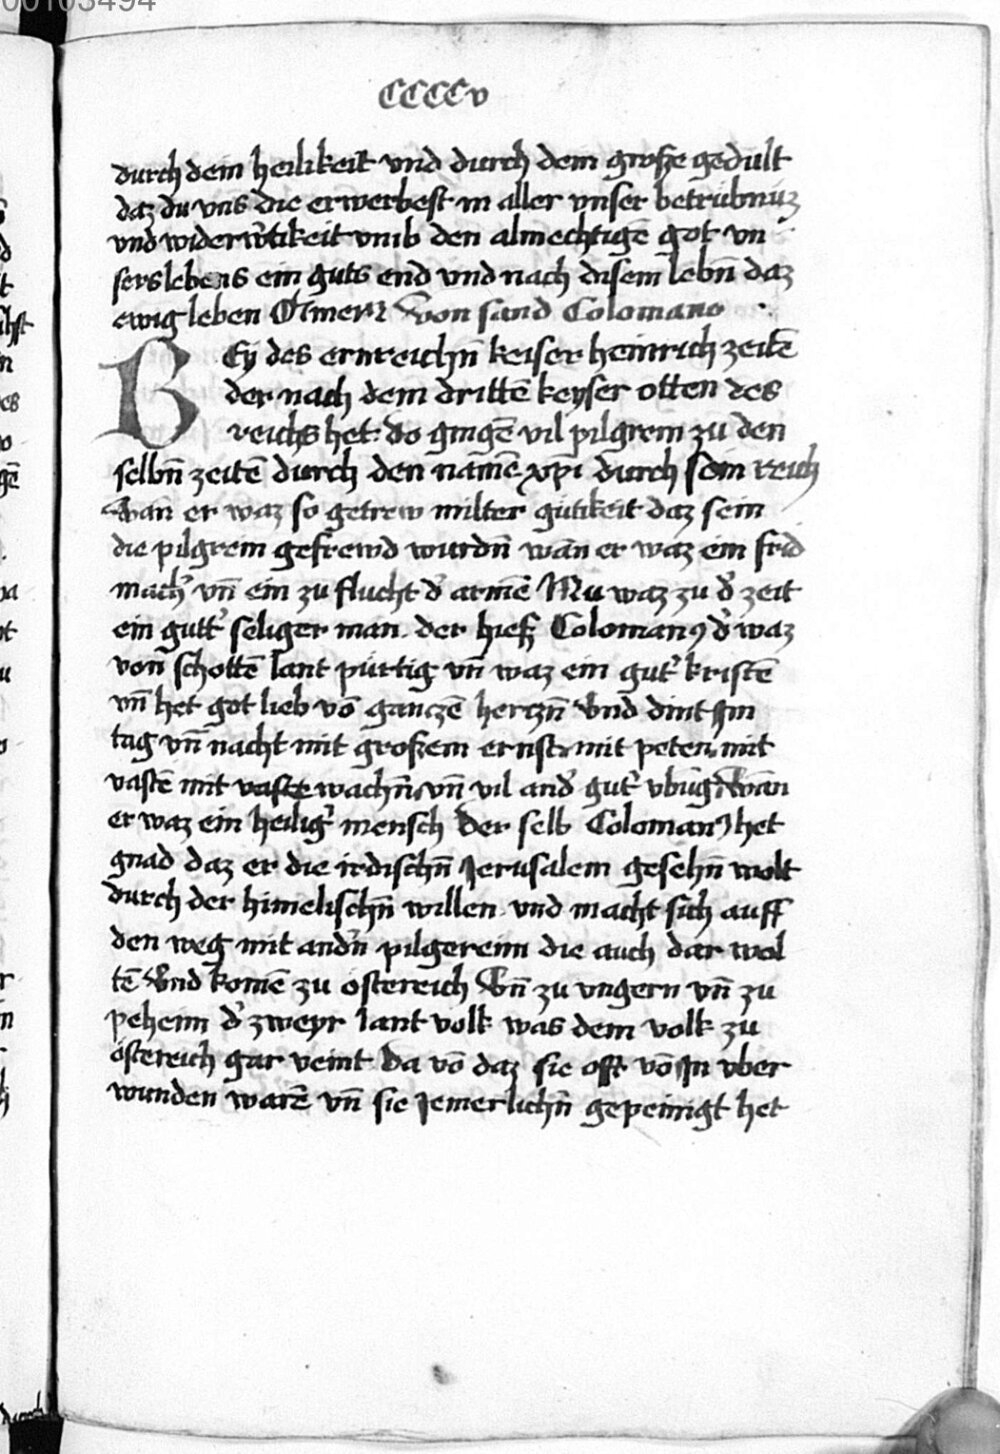 00103494
CCCCv
durch dein heilikeit vnd durch dein große gedult
daz du vns die erwerbest in aller vnser betrubnüz
vnd widerw̉tikeit vmb den almechtigē got vn
sers lebens ein guts end vnd nach disem lebn̄ daz
ewig leben Amen Von sand Colomano
BEy des ernreichn̄ keiser heinrich zeitē
der nach dem drittē keyser otten des
reichs het. do gingē vil pilgrem zu den
selbn̄ zeitē durch den namē xp̄i durch sein reich
Wan er waz so getrew milter gütikeit daz sein
die pilgrem gefrewd wurdn̄ wān er waz ein frid
mach̉ vn̄ ein zu flucht d̉ armē Nu waz zu d̉ zeit
ein gutt̉ seliger man. der hieß Colomanꝰ d̉ waz
von schottē lant pürtig vn̄ waz ein gut̉ kristē
vn̄ het got lieb vō ganczē hertzn̄ Vnd dint Jm
tag vn̄ nacht mit großem ernst mit peten mit
vastē mit vaste wachn̄ vn̄ vil and̉ gut̉ vbūg Wān
er waz ein heilig̉ mensch Der selb Colomanꝰ het
gnad daz er die irdischn̄ Jerusalem gesehn̄ wolt
durch der himelischn̄ willen vnd macht sich auff
den weg mit and̉n pilgereinn die auch dar wol
tē Vnd komē zu östereich Vn̄ zu vngern vn̄ zu
peheim d̉ zweyr lant volk was dem volk zu
östereich gar veint Da vō daz sie offt vō Jn vber
wunden warē vn̄ sie Jemerlichn̄ gepeinigt het